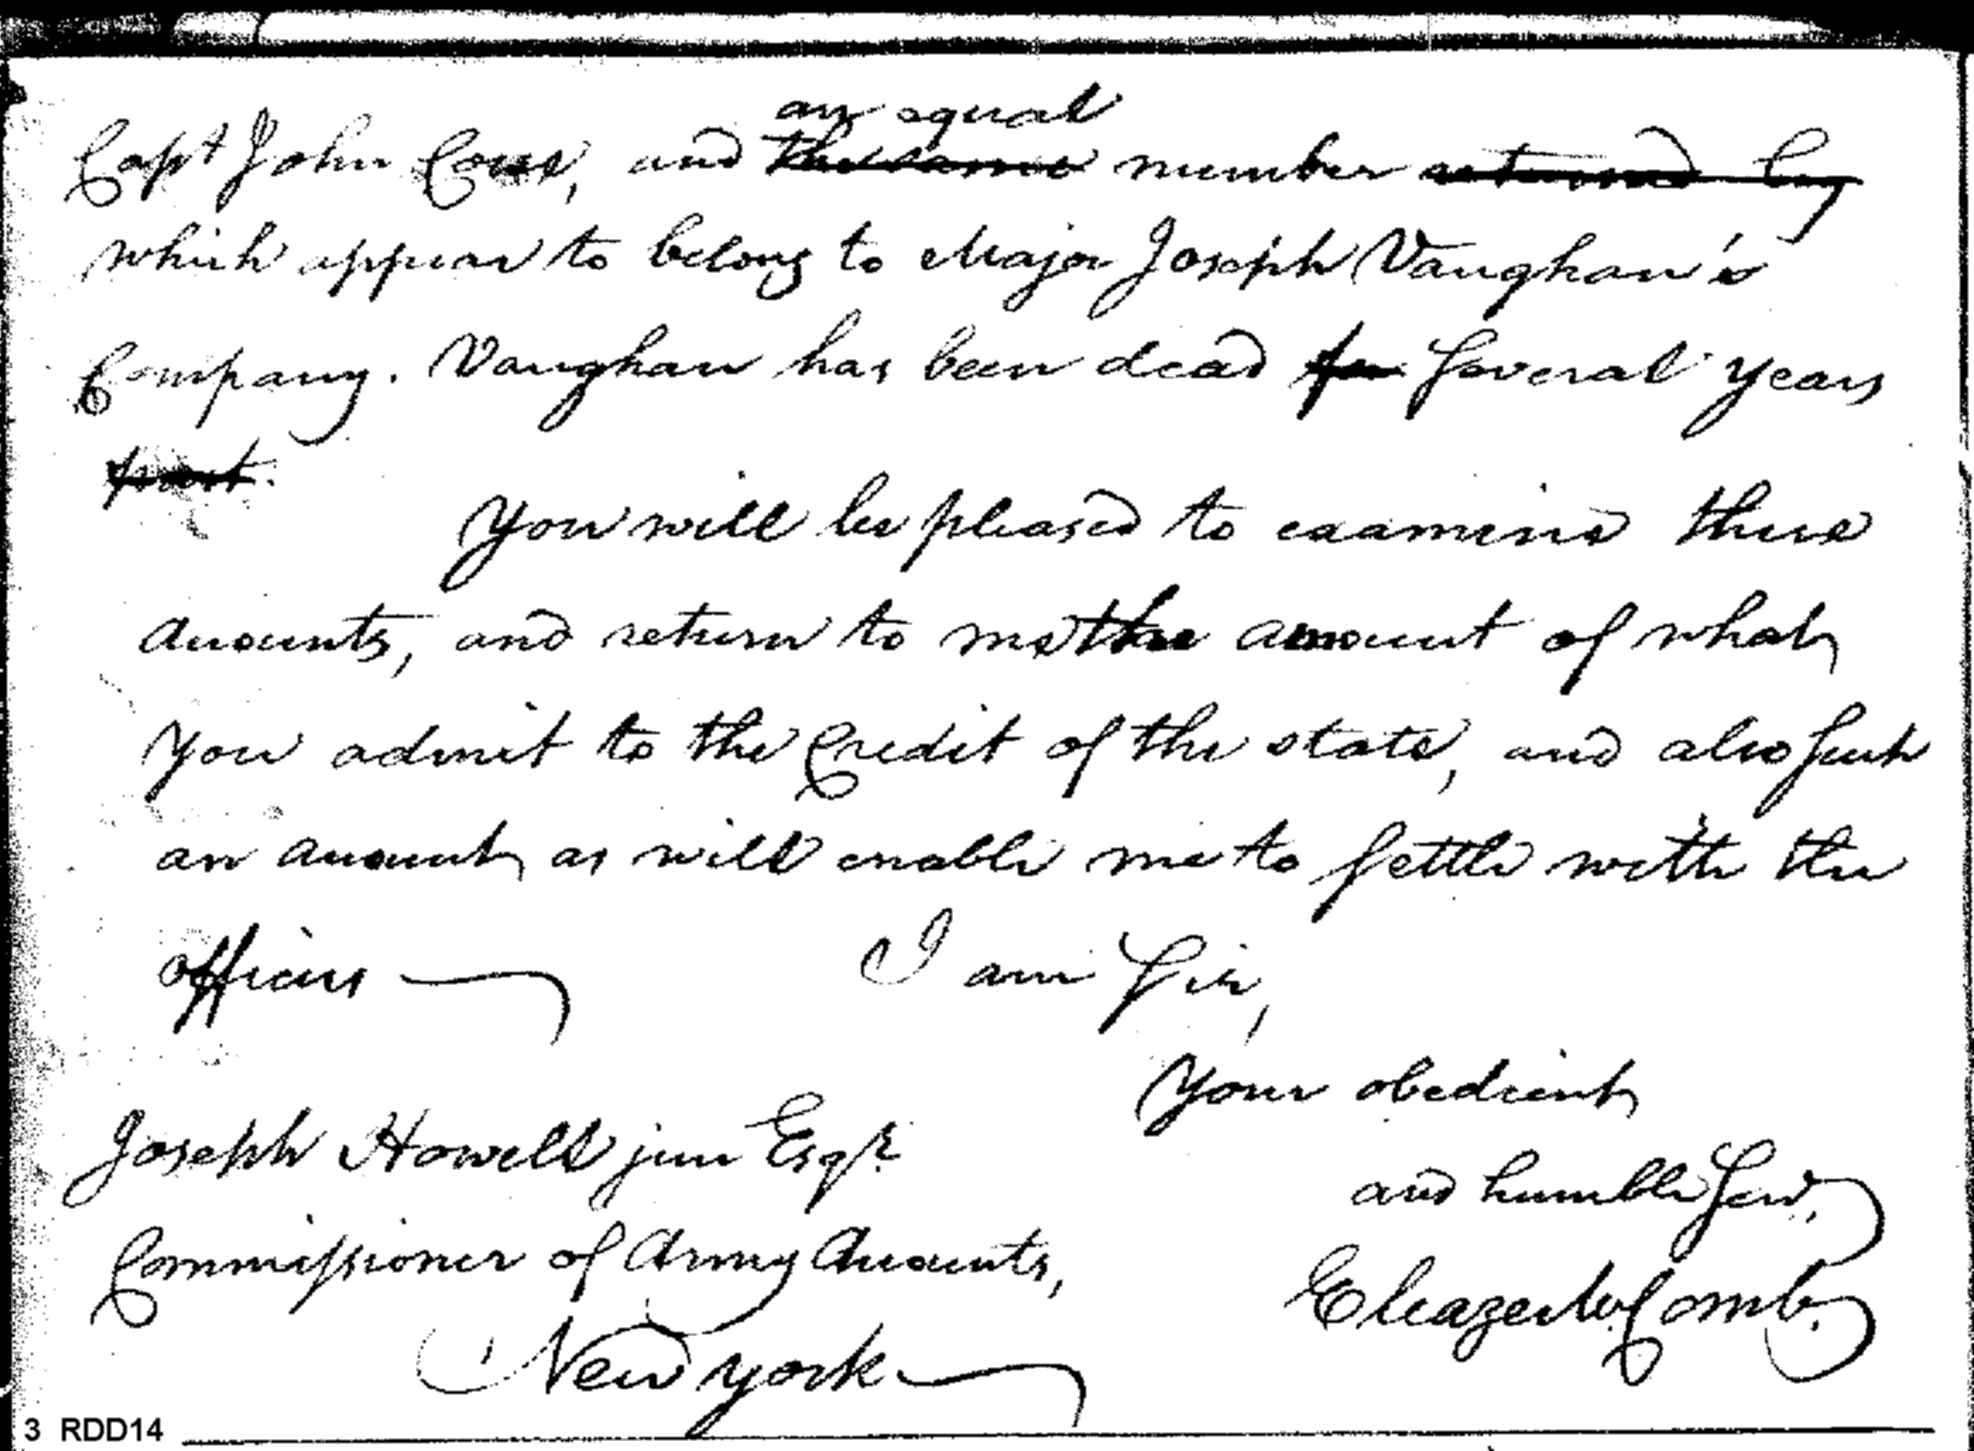 an equal
Capt John Coxe, and the same number returned by
which appear to belong to Major Joseph Vaughan's
Company. Vaughan has been dead for several years
past.
You will be pleased to examine these
Accounts, and return to me the amount of what
you admit to the Credit of the state, and also such
an Account as will enable me to settle with the
officers
I am Sir,
Your obedient
and humble Serv.
Joseph Howell jun Esqr.
Commissioner of Army Accounts,
Eleazer McComb.
New York
3 RDD14